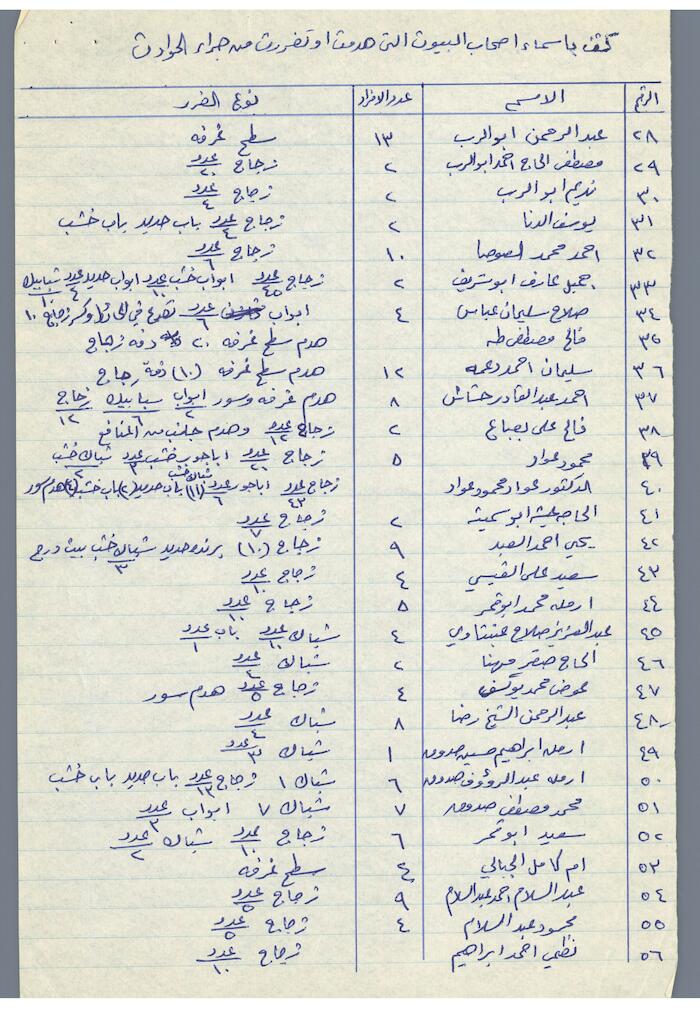 كشف باسماء اصحاب البيوت التى هدمت او تضررت من جراء الحوادث
الرقم الاسم عدد الافراد نوع الضرر
٢٨ عبد الرحمن ابو الرب ١٣ سطح غرفه
٢٩ مصطفى الحاج احمد ابو الرب ٢ زجاج عدد ٢٠
٣٠ نديم ابو الرب ٢ زجاج عدد ٤
٣١ يوسف الدنا ٢ زجاج عدد ٤ باب حديد باب خشب
٣٢ احمد محمد ١٠ زجاج عدد ٦
٣٣ جميل عارف ابو شريف ٢ زجاج عدد ٤٥ ابواب خشب عدد ١٠ ابواب حديد عدد ٤ شبابيك ١٠
٣٤ صلاح سليمان عباس ٤ ابواب عدد ٦ في الحائط وكسر زجاج ١٠
٣٥ فالح مصطفى طه هدم سطح غرفه ٢٠ دفه زجاج
٣٦ سليمان احمد دعمه ١٢ هدم سطح غرفه (١٠) دفة زجاج
٣٧ احمد عبد القادر حشاش ٨ هدم غرفه وسور ابواب ٢ سبابيك ٦ زجاج ١٢
٣٨ فالح على صباغ ٢ زجاج عدد ١٢ وهدم جانب من المنافع
٣٩ محمود عواد ٥ زجاج عدد ٢١ اباجور خشب عدد ٣ شباك خشب ٢
٤٠ الدكتور عواد محمود عواد زجاج عدد ٤٣ اباجور عدد ٦ شباك خشب (١١) باب حديد (٢) باب خشب (٤) هدم سور
٤١ الحاجه عيشه ابو سميثه ٢ زجاج عدد ٧
٤٢ يحي احمد العبد ٩ زجاج (١٠) برنده حديد شباك خشب ٣ بيت درج
٤٣ سعيد على القيسي ٤ زجاج عدد ١٠
٤٤ ارمله محمد ابو قمر ٥ زجاج عدد ١٠
٤٥ عبد العزيز صلاح عنبتاوي ٤ شباك عدد ١٠ باب عدد ١
٤٦ الحاج صقر مهنا ٢ شباك عدد ٤
٤٧ عوض محمد يوسف ٤ زجاج عدد ٥ هدم سور
٤٨ عبد الرحمن الشيخ رضا ٨ شباك عدد ٤
٤٩ ارمله ابراهيم حسين صدوق ١ شباك عدد ٣
٥٠ ارمله عبد الرؤوف صدوق ٦ شباك ١ زجاج عدد ١٣ باب حديد باب خشب
٥١ محمد مصطفى صدوق ٧ شباك ٧ ابواب عدد ٣
٥٢ سعيد ابو قمر ٦ زجاج عدد ١٠ شباك عدد ٢
٥٣ ام كامل الجبالي ٤ سطح غرفه
٥٤ عبد السلام احمد عبد السلام ٩ زجاج عدد ٥
٥٥ محمود عبد السلام ٤ زجاج عدد ٥
٥٦ نظمي احمد ابراهيم زجاج عدد ١٠